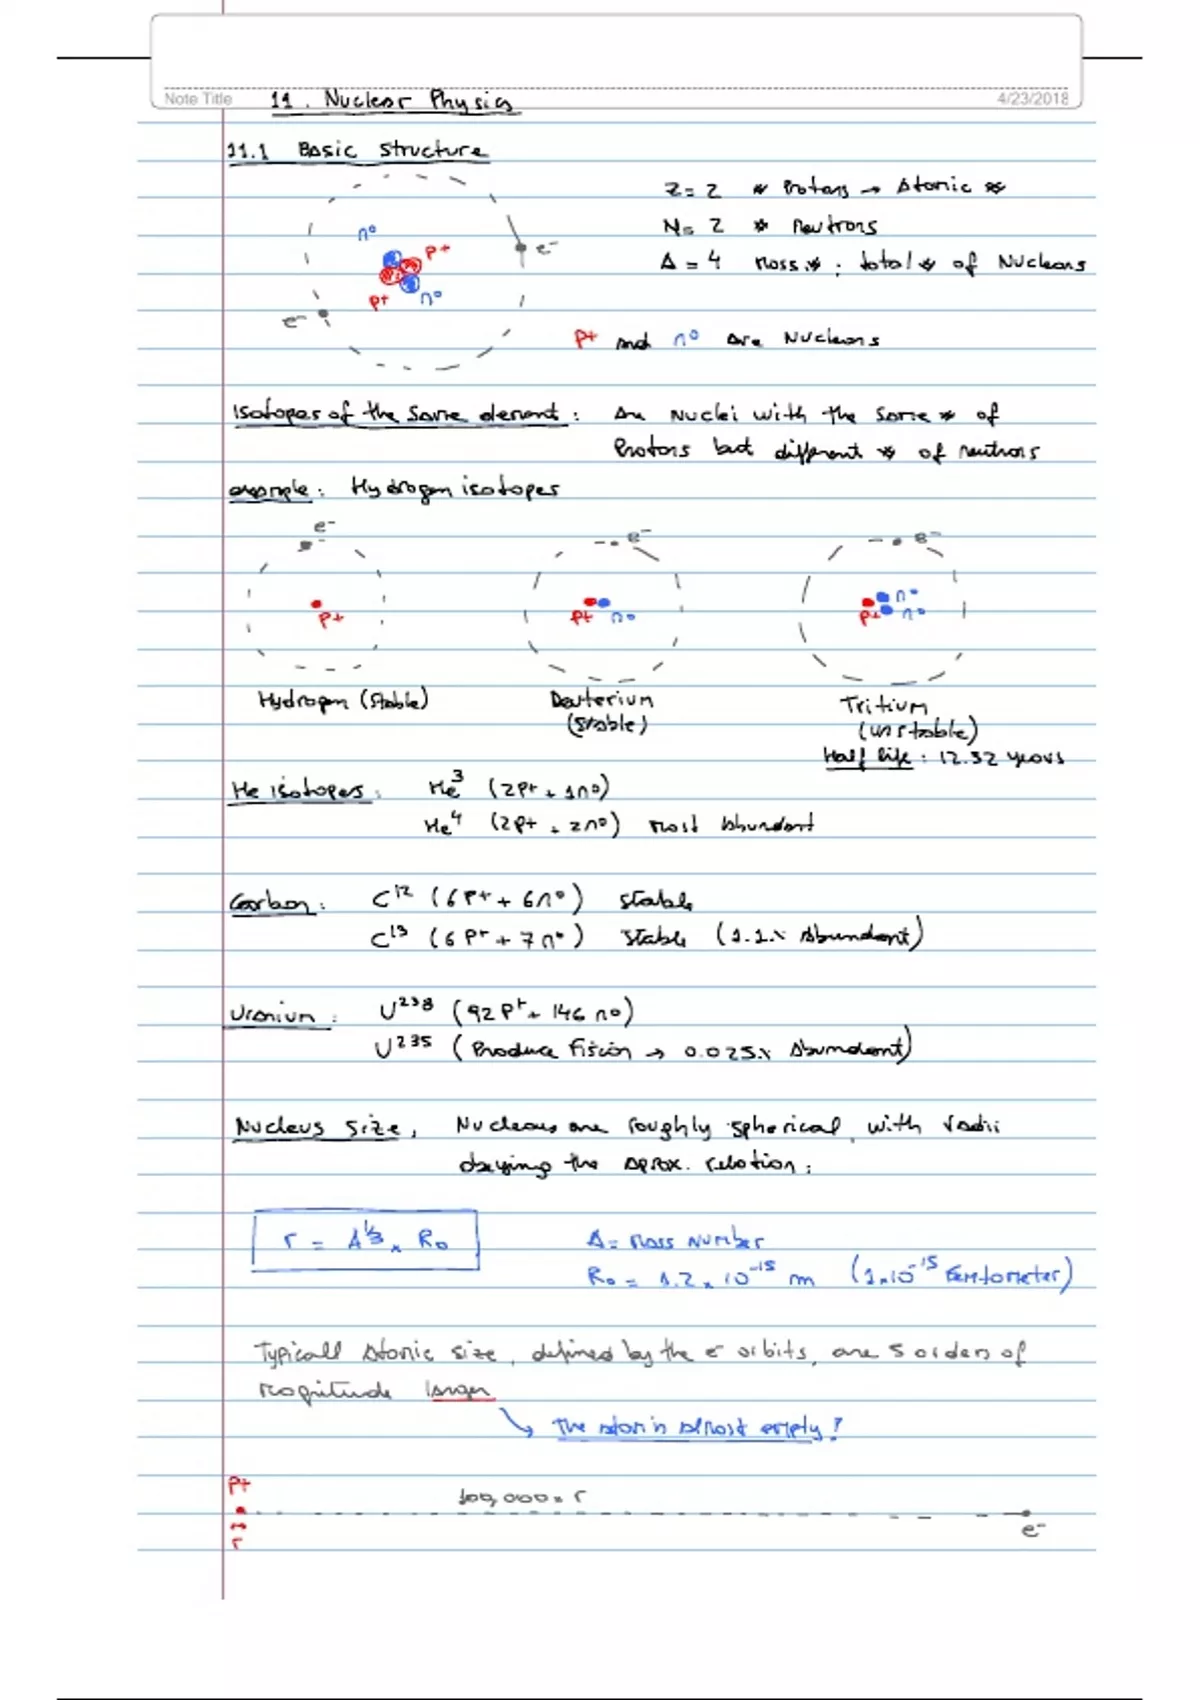 Note Title
11. Nuclear Physics
4/23/2018
11.1 Basic Structure
Z = 2 # Protons → Atomic #
N = 2 # neutrons
A = 4 Mass # : total # of Nucleons
n° p+ e-
p+ n° e-
p+ and n° are Nucleons
Isotopes of the same element: Are Nuclei with the same # of
Protons but different # of neutrons
example: Hydrogen isotopes
e- e- e-
p+ p+ n° p+ n° n°
Hydrogen (Stable) Deuterium (Stable) Tritium (unstable)
Half life: 12.32 years
He isotopes: He³ (2p+ + 1n°)
He⁴ (2p+ + 2n°) most abundant
Carbon: C¹² (6p+ + 6n°) stable
C¹³ (6p+ + 7n°) stable (1.1% abundant)
Uranium: U²³⁸ (92p+ + 146n°)
U²³⁵ (Produce Fision → 0.025% Abundant)
Nucleus Size, Nucleous are roughly spherical, with radii
obeying the aprox. relation:
r = A^1/3 × R₀
A = Mass Number
R₀ = 1.2 × 10⁻¹⁵ m (1×10⁻¹⁵ femtometer)
Typicall Atomic size, defined by the e- orbits, are 5 orders of
magnitude larger
The atom is almost empty!
p+
100,000 × r
r
e-